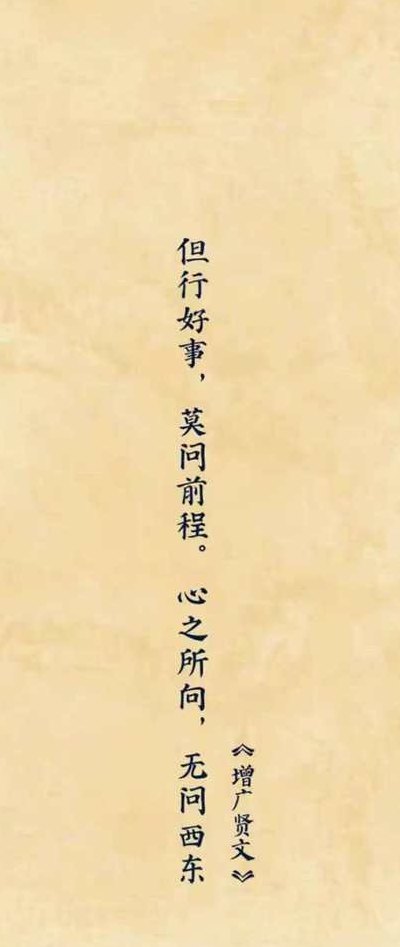 但行好事，莫问前程。心之所向，无问西东
《增广贤文》